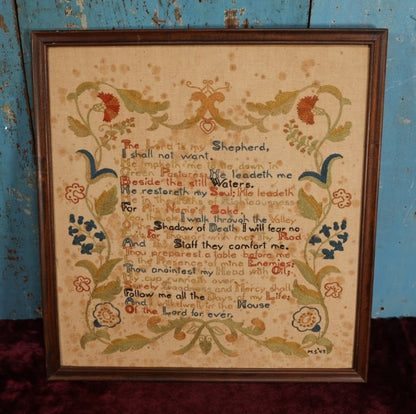 The Lord is my Shepherd,
I shall not want.
He maketh me lie down in
Green Pastures: He leadeth me
Beside the still Waters.
He restoreth my Soul: He leadeth
For His Name's Sake.
I walk through the Valley
Shadow of Death I will fear no
Rod
And Staff they comfort me.
Thou preparest a table before me
In the Presence of mine Enemies:
Thou anointest my Head with Oil;
My cup runneth over.
Surely Goodness and Mercy shall
Follow me all the Days of my Life;
And I dwell in the House
Of the Lord for ever.